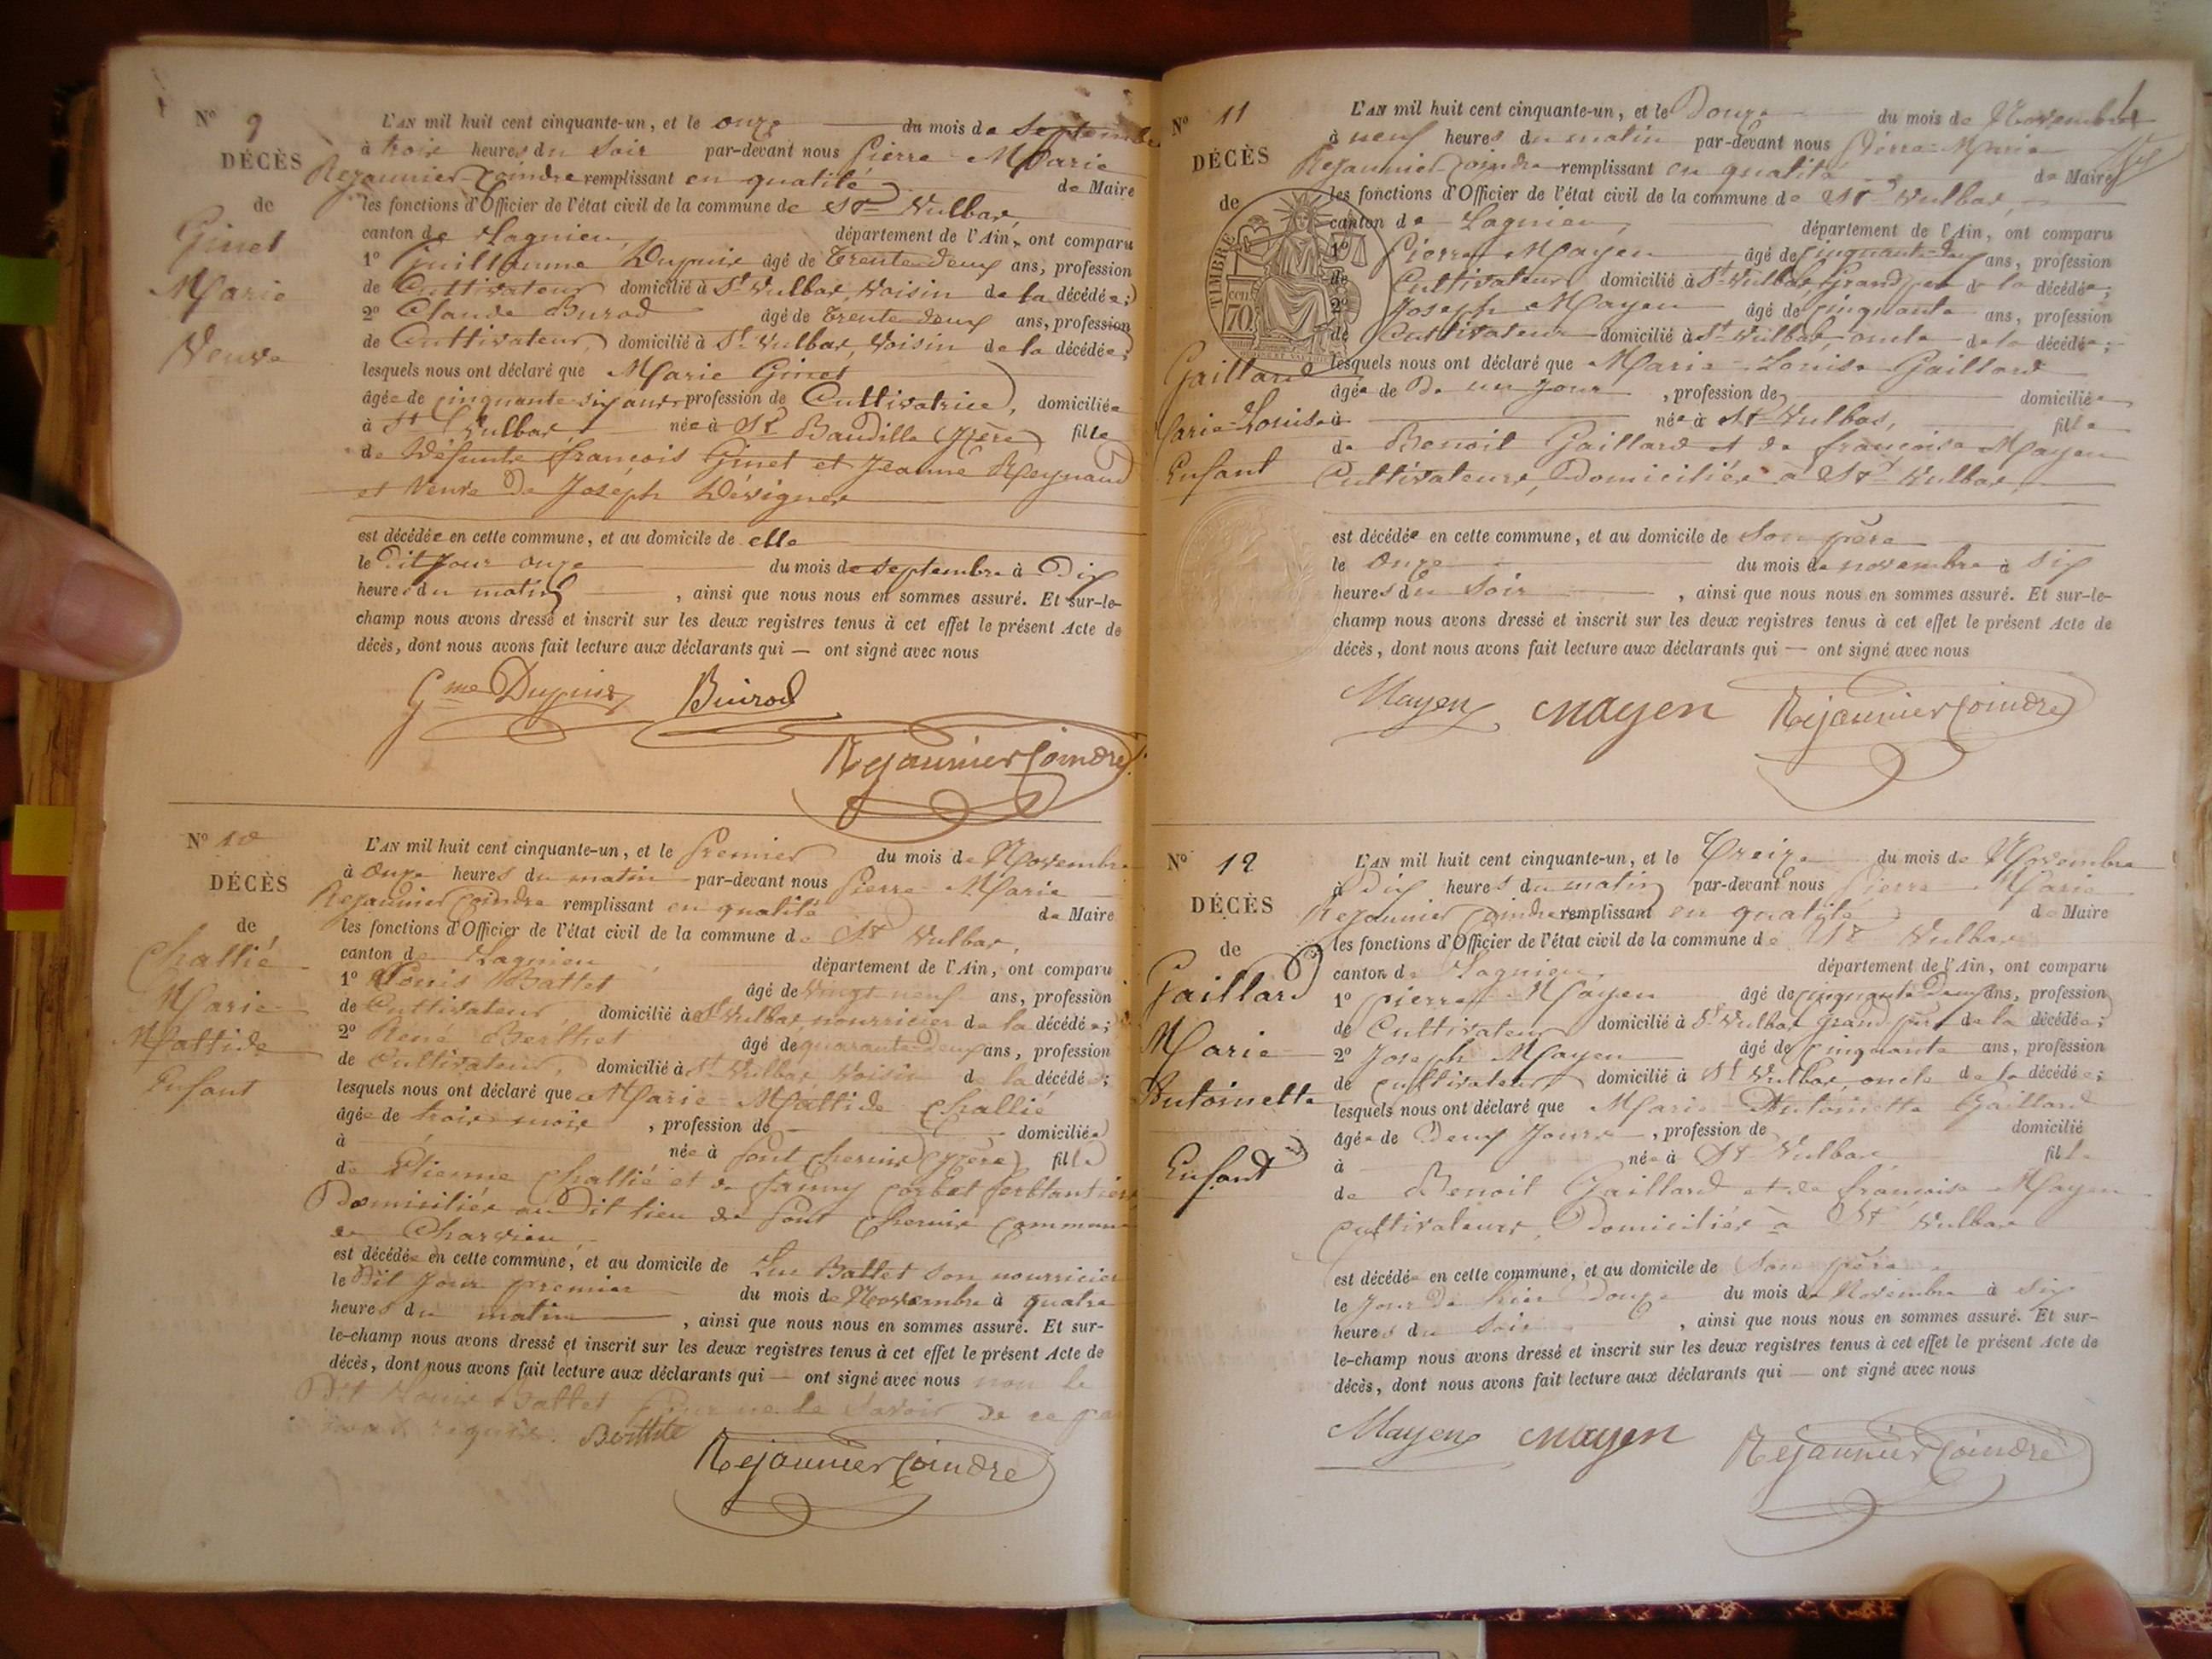 N.º 9
DÉCÈS
de
Ginet
Marie
Veuve
L'AN mil huit cent cinquante-un, et le onze du mois de Septembre
à trois heures du soir par-devant nous Pierre Marie
Rejaunier Coindre remplissant en qualité de Maire
les fonctions d'Officier de l'état civil de la commune de St Vulbas,
canton de Lagnieu, département de l'Ain, ont comparu
1º Guillaume Dupuis âgé de trente deux ans, profession
de Cultivateur domicilié à St Vulbas, Voisin de la décédée;
2º Claude Buirod âgé de trente deux ans, profession
de Cultivateur, domicilié à St Vulbas, Voisin de la décédée;
lesquels nous ont déclaré que Marie Ginet
âgée de cinquante six ans profession de Cultivatrice, domiciliée
à St Vulbas née à St Baudille (Isère) fille
de Défunts françois Ginet et Jeanne Meynaud
et Veuve de Joseph Dévigner
est décédée en cette commune, et au domicile de elle
le Dit Jour onze du mois de septembre à Dix
heures du matin, ainsi que nous nous en sommes assuré. Et sur-le-
champ nous avons dressé et inscrit sur les deux registres tenus à cet effet le présent Acte de
décès, dont nous avons fait lecture aux déclarants qui — ont signé avec nous
Gme Dupuis Buirod
Rejaunier Coindre
N.º 10
DÉCÈS
de
Challié
Marie
Maltide
Enfant
L'AN mil huit cent cinquante-un, et le premier du mois de Novembre
à onze heures du matin par-devant nous Pierre Marie
Rejaunier Coindre remplissant en qualité de Maire
les fonctions d'Officier de l'état civil de la commune de St Vulbas,
canton de Lagnieu département de l'Ain, ont comparu
1º Louis Battet âgé de vingt neuf ans, profession
de Cultivateur, domicilié à St Vulbas, nourricier de la décédée;
2º René Berthet âgé de quarante deux ans, profession
de Cultivateur, domicilié à St Vulbas Voisin de la décédée;
lesquels nous ont déclaré que Marie Maltide Challié
âgée de trois mois, profession de domiciliée
à née à Pont Cheruis (Isère) fille
de Etienne Challié et de fanny Corbet ferblantiers
Domiciliés au Dit lieu de Pont Cheruis Commune
de Charvieu
est décédée en cette commune, et au domicile de Battet son nourricier
le Dit Jour premier du mois de Novembre à quatre
heures du matin, ainsi que nous nous en sommes assuré. Et sur-
le-champ nous avons dressé et inscrit sur les deux registres tenus à cet effet le présent Acte de
décès, dont nous avons fait lecture aux déclarants qui — ont signé avec nous non le
Dit Louis Battet pour ne le savoir de ce
requis. Berthet
Rejaunier Coindre
4
N.º 11
DÉCÈS
de
TIMBRE
70
Gaillard
Marie-Louise
Enfant
L'AN mil huit cent cinquante-un, et le Douze du mois de Novembre
à neuf heures du matin par-devant nous Pierre-Marie
Rejaunier Coindre remplissant en qualité de Maire
les fonctions d'Officier de l'état civil de la commune de St Vulbas,
canton de Lagnieu, département de l'Ain, ont comparu
1º Pierre Mayen âgé de cinquante-deux ans, profession
de Cultivateur domicilié à St Vulbas, Grand père de la décédée;
2º Joseph Mayen âgé de cinquante ans, profession
de Cultivateur domicilié à St Vulbas, oncle de la décédée;
lesquels nous ont déclaré que Marie Louise Gaillard
âgée de De un Jour, profession de domiciliée
à née à St Vulbas, fille
de Benoit Gaillard et de françoise Mayen
Cultivateurs, Domiciliés à St Vulbas,
est décédée en cette commune, et au domicile de son père
le Onze du mois de novembre à six
heures du Soir, ainsi que nous nous en sommes assuré. Et sur-le-
champ nous avons dressé et inscrit sur les deux registres tenus à cet effet le présent Acte de
décès, dont nous avons fait lecture aux déclarants qui — ont signé avec nous
Mayen mayen Rejaunier Coindre
N.º 12
DÉCÈS
de
Gaillard
Marie
Antoinette
Enfant
L'AN mil huit cent cinquante-un, et le Treize du mois de Novembre
à Dix heures du matin par-devant nous Pierre Marie
Rejaunier Coindre remplissant en qualité de Maire
les fonctions d'Officier de l'état civil de la commune de St Vulbas
canton de Lagnieu, département de l'Ain, ont comparu
1º pierre Mayen âgé de cinquante Deux ans, profession
de Cultivateur domicilié à St Vulbas grand père de la décédée;
2º Joseph Mayen âgé de cinquante ans, profession
de cultivateur domicilié à St Vulbas, oncle de la décédée;
lesquels nous ont déclaré que Marie Antoinette Gaillard
âgée de Deux Jours, profession de domicilié
à née à St Vulbas fille
de Benoit Gaillard et de françoise Mayen
cultivateurs, Domiciliés à St Vulbas
est décédée en cette commune, et au domicile de son père
le Jour De hier Douze du mois de Novembre à six
heures du Soir, ainsi que nous nous en sommes assuré. Et sur-
le-champ nous avons dressé et inscrit sur les deux registres tenus à cet effet le présent Acte de
décès, dont nous avons fait lecture aux déclarants qui — ont signé avec nous
Mayen mayen Rejaunier Coindre